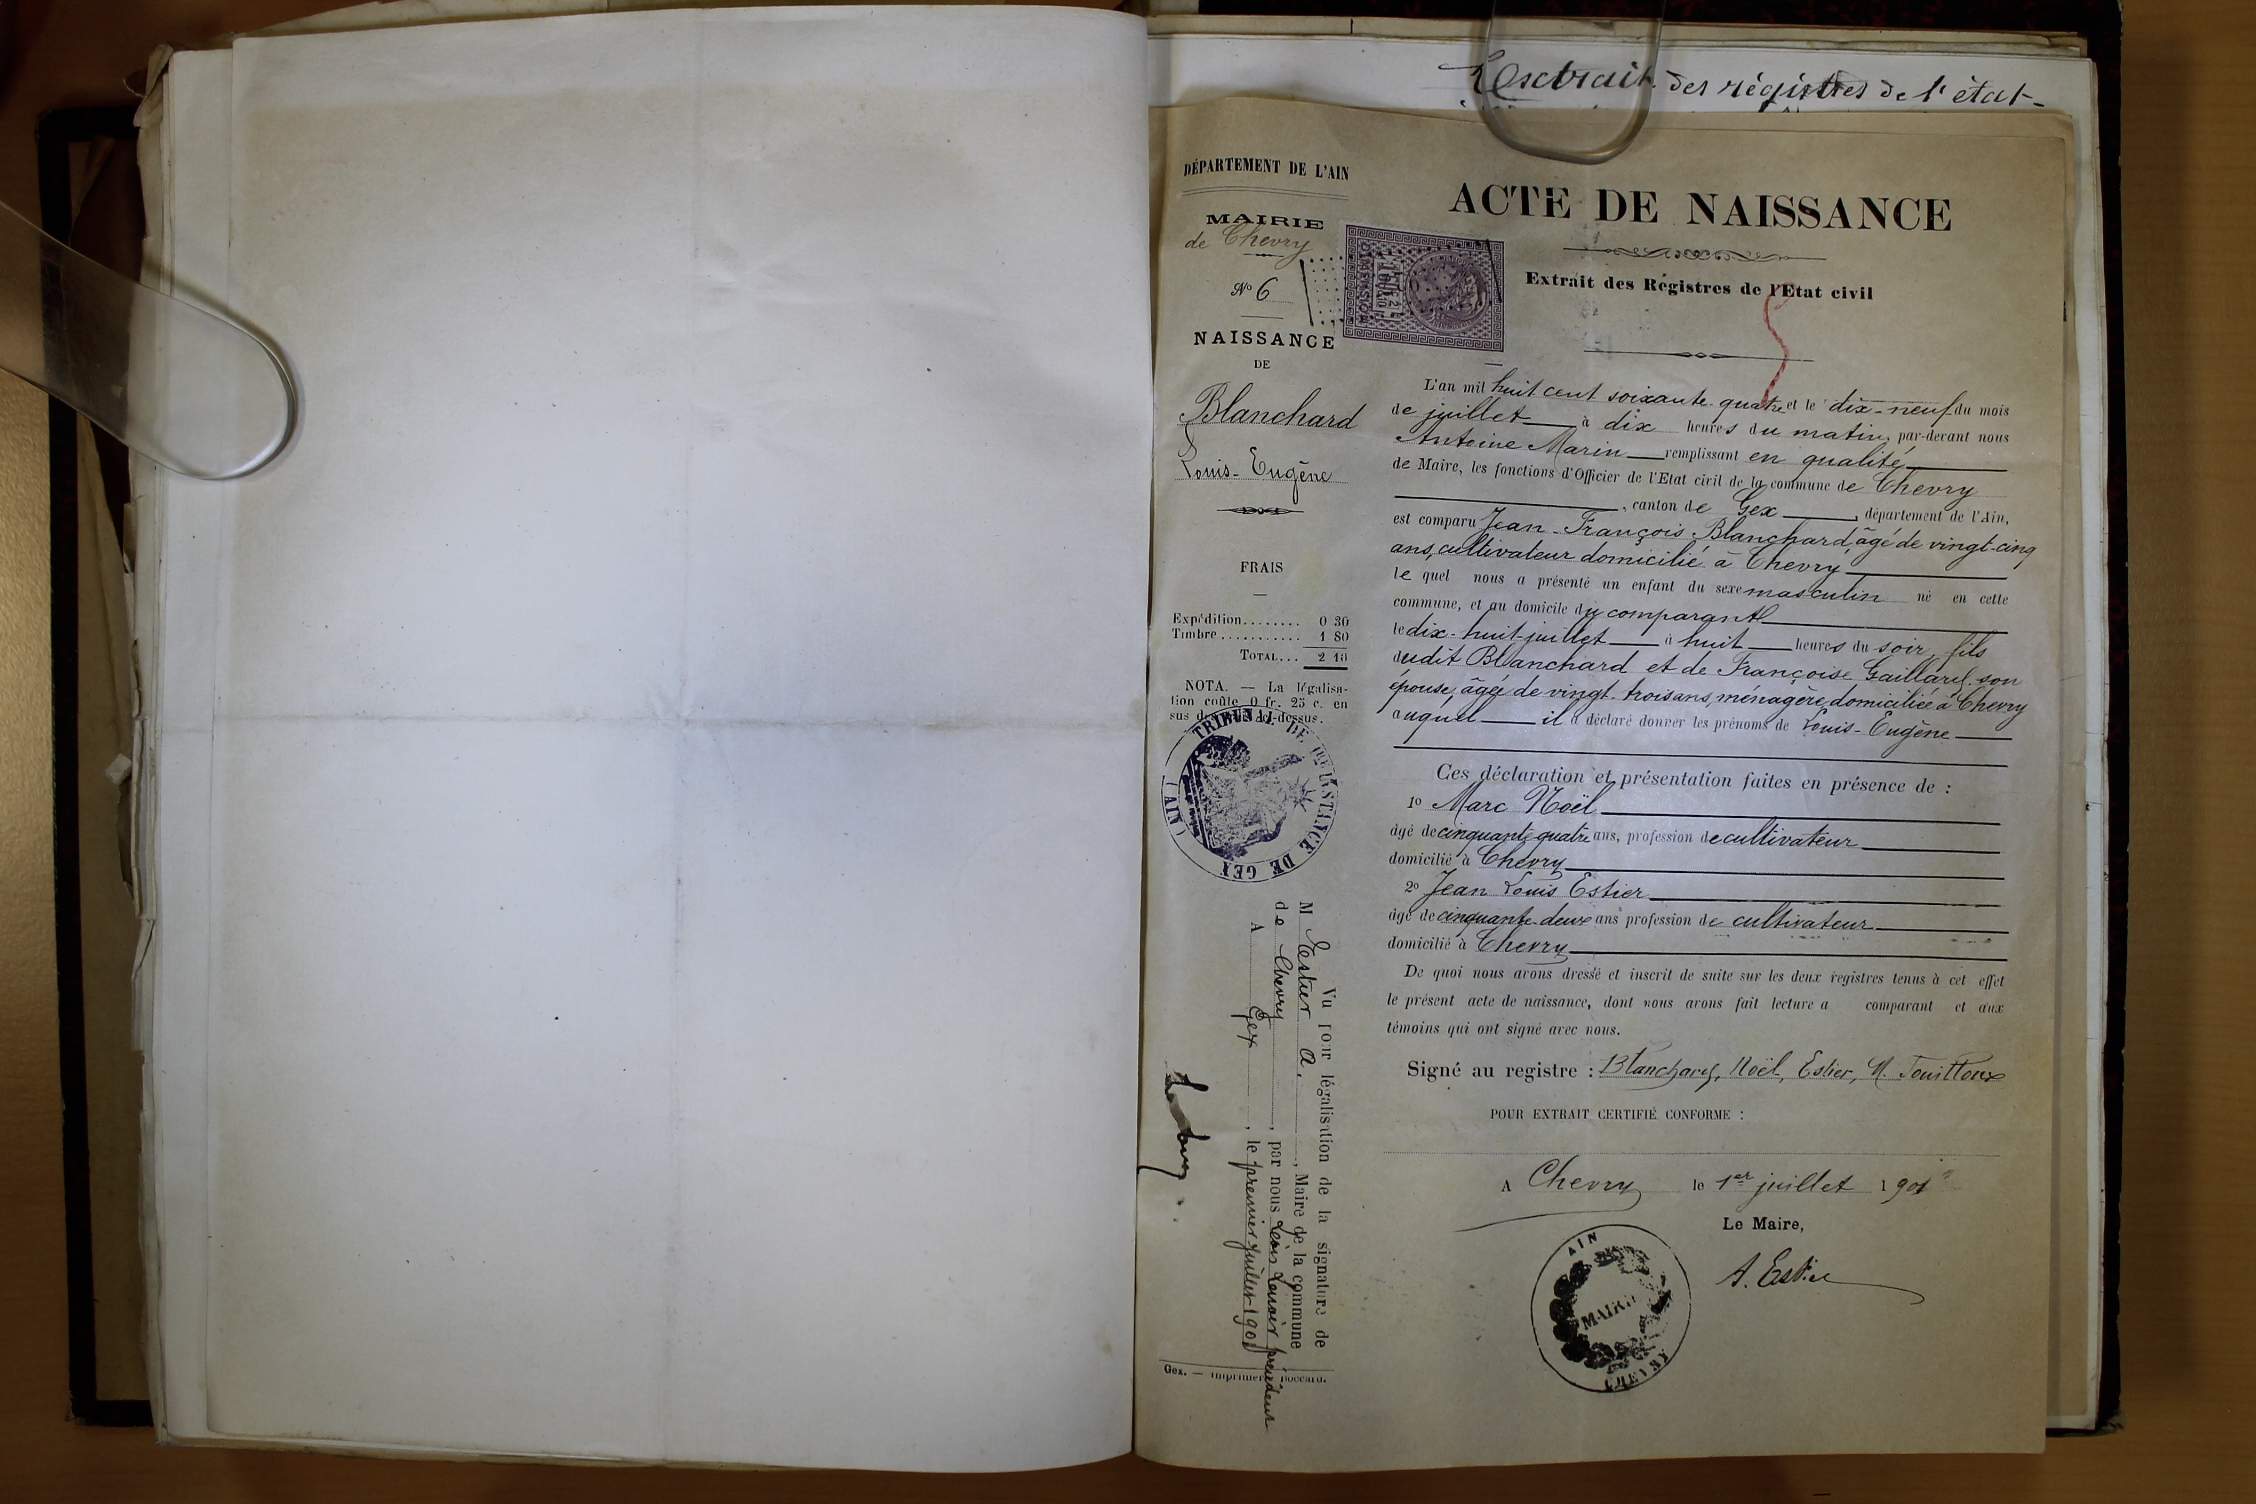 Extrait des régistres de l'état-
DÉPARTEMENT DE L'AIN
MAIRIE
de Chevry
N° 6
NAISSANCE
DE
Blanchard
Louis-Eugène
FRAIS
Expédition........ 0 30
Timbre............ 1 80
TOTAL... 2 10
NOTA. — La légalisa-
tion coûte 0 fr. 25 c. en
sus de ci-dessus.
TRIBUNAL DE 1RE INSTANCE DE GEX (AIN)
Vu pour légalisation de la signature de
M Estier A., Maire de la commune
de Chevry, par nous Léon président
A Gex, le premier Juillet 1901
Gex. — Imprimerie
ACTE DE NAISSANCE
Extrait des Régistres de l'Etat civil
L'an mil huit cent soixante quatre et le dix-neuf du mois
de juillet à dix heures du matin, par-devant nous
Antoine Marin remplissant en qualité
de Maire, les fonctions d'Officier de l'Etat civil de la commune de Chevry
, canton de Gex, département de l'Ain,
est comparu Jean-François Blanchard, âgé de vingt-cinq
ans, cultivateur domicilié à Chevry
le quel nous a présenté un enfant du sexe masculin né en cette
commune, et au domicile du comparant
le dix-huit juillet à huit heures du soir, fils
dudit Blanchard et de Françoise Gaillard son
épouse, âgée de vingt-trois ans, ménagère, domiciliée à Chevry
auquel il a déclaré donner les prénoms de Louis-Eugène
Ces déclaration et présentation faites en présence de :
1° Marc Noël
âgé de cinquante quatre ans, profession de cultivateur
domicilié à Chevry
2° Jean Louis Estier
âgé de cinquante-deux ans profession de cultivateur
domicilié à Chevry
De quoi nous avons dressé et inscrit de suite sur les deux registres tenus à cet effet
le présent acte de naissance, dont nous avons fait lecture a comparant et aux
témoins qui ont signé avec nous.
Signé au registre : Blanchard, Noël, Estier, M.
POUR EXTRAIT CERTIFIÉ CONFORME :
A Chevry le 1er juillet 1901
Le Maire,
A. Estier
AIN
MAIRIE
CHEVRY